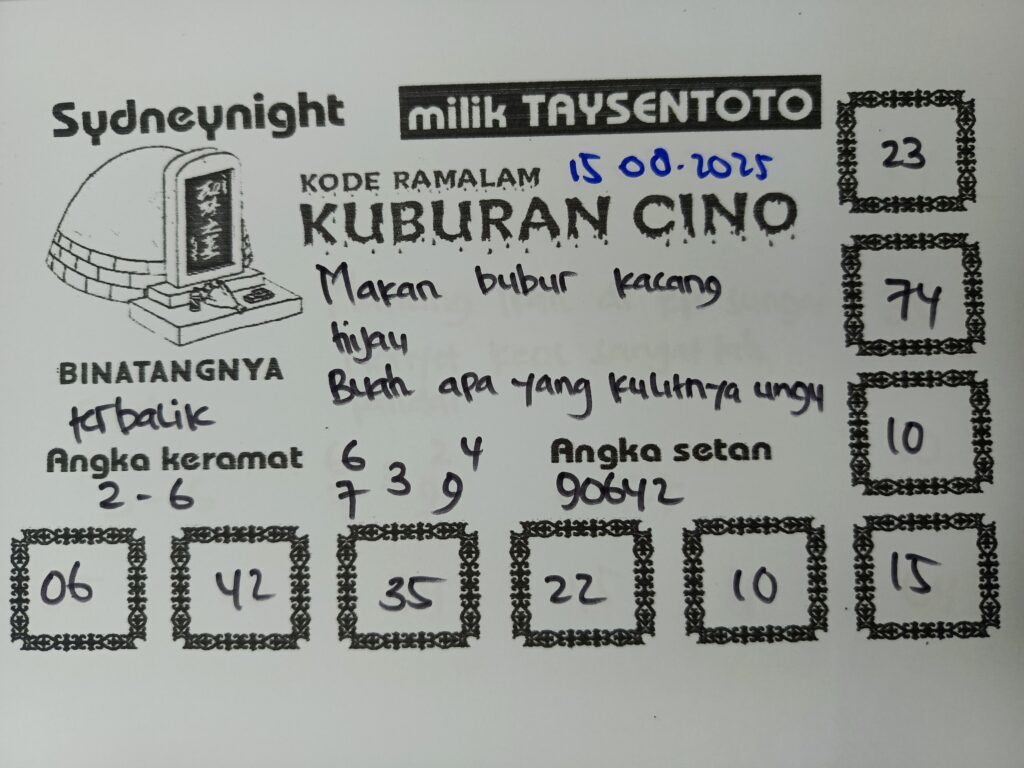 Sydneynight
milik TAYSENTOTO
KODE RAMALAM 15 08.2025
KUBURAN CINO
Makan bubur kacang
hijau
Buah apa yang kulitnya ungu
BINATANGNYA
terbalik
Angka keramat
2 - 6
6 4
7 3 9
Angka setan
90642
23
74
10
15
06 42 35 22 10